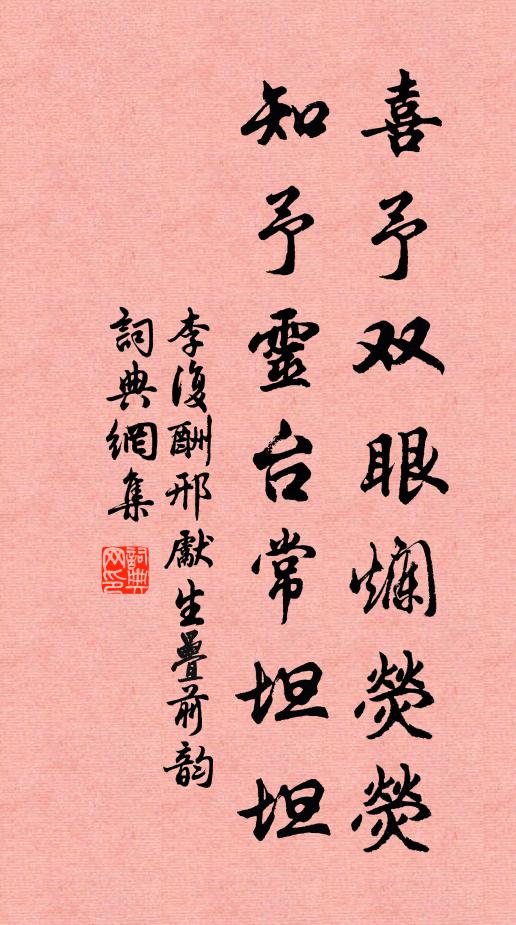 喜予双眼爛熒熒
知予靈台常坦坦
李復酬邢獻生疊前韵
詞典網集
詞典網印